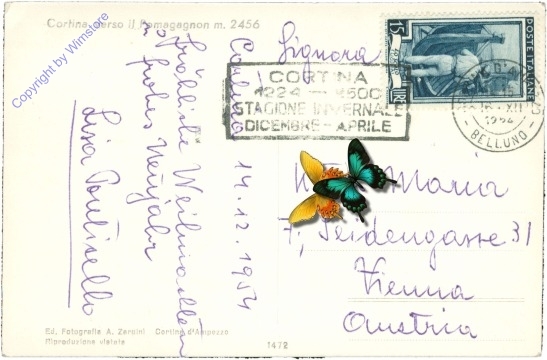 Cortina verso il Pomagagnon m. 2456
Copyright by Wimstore
Cortina 14.12.1954
Fröhliche Weihnachten
u frohes Neujahr
Signora
Maria
7, Seidengasse 31
Vienna
Austria
15
LIRE
POSTE ITALIANE
CORTINA
1224 - 3500
STAGIONE INVERNALE
DICEMBRE - APRILE
BELLUNO
Ed. Fotografia A. Zardini Cortina d'Ampezzo
Riproduzione vietata
1472